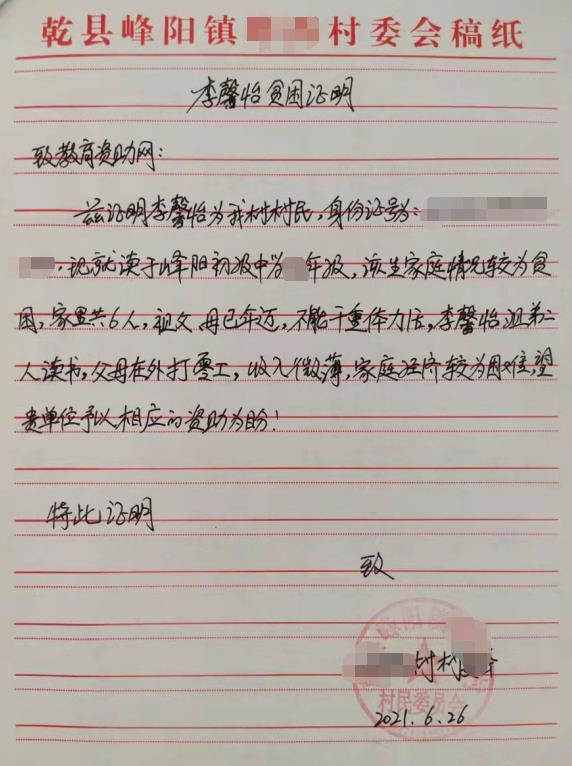 乾县峰阳镇村委会稿纸
李馨怡贫困证明
致教育资助网:
兹证明李馨怡为我村村民,身份证号为:
,现就读于峰阳初级中学年级,该生家庭情况较为贫
困,家里共6人,祖父、母已年迈,不能干重体力活,李馨怡姐弟二
人读书,父母在外打零工,收入微薄,家庭经济较为困难,望
贵单位予以相应的资助为盼!
特此证明
致
村村委会
村民委员会
2021.6.26